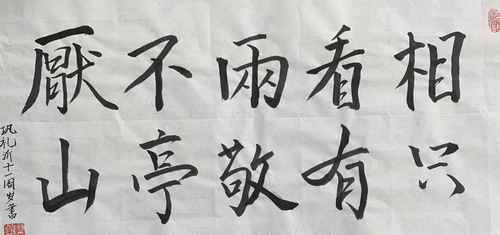 相看兩不厭
只有敬亭山
巩礼 十一周岁書